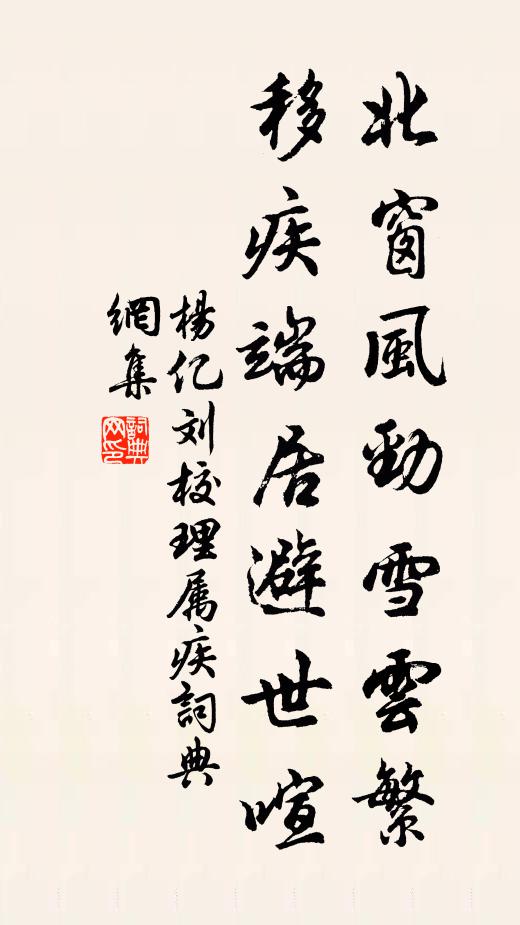 北窗風勁雪雲繁
移疾端居避世喧
楊亿刘校理属疾詞典
網集
詞典
网印